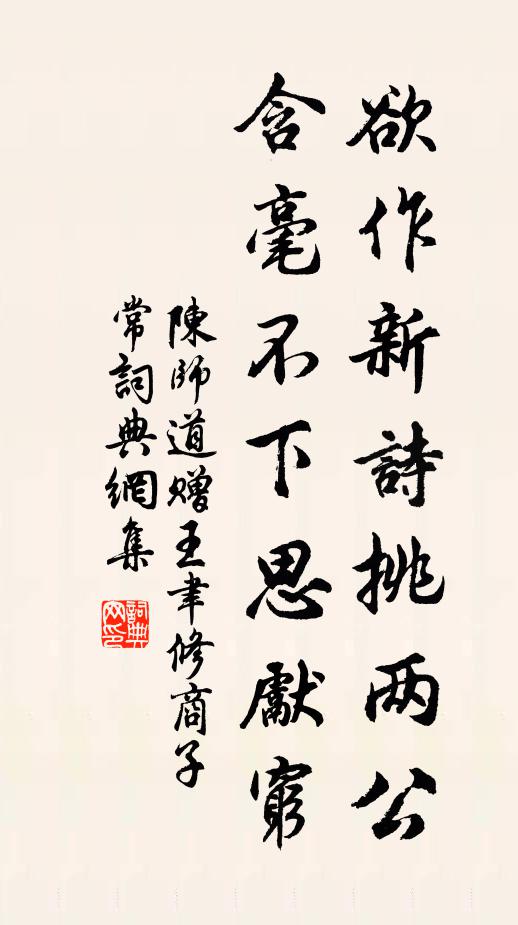 欲作新詩挑两公
含毫不下思獻窮
陳師道赠王聿修商子
常詞典網集
詞典网印